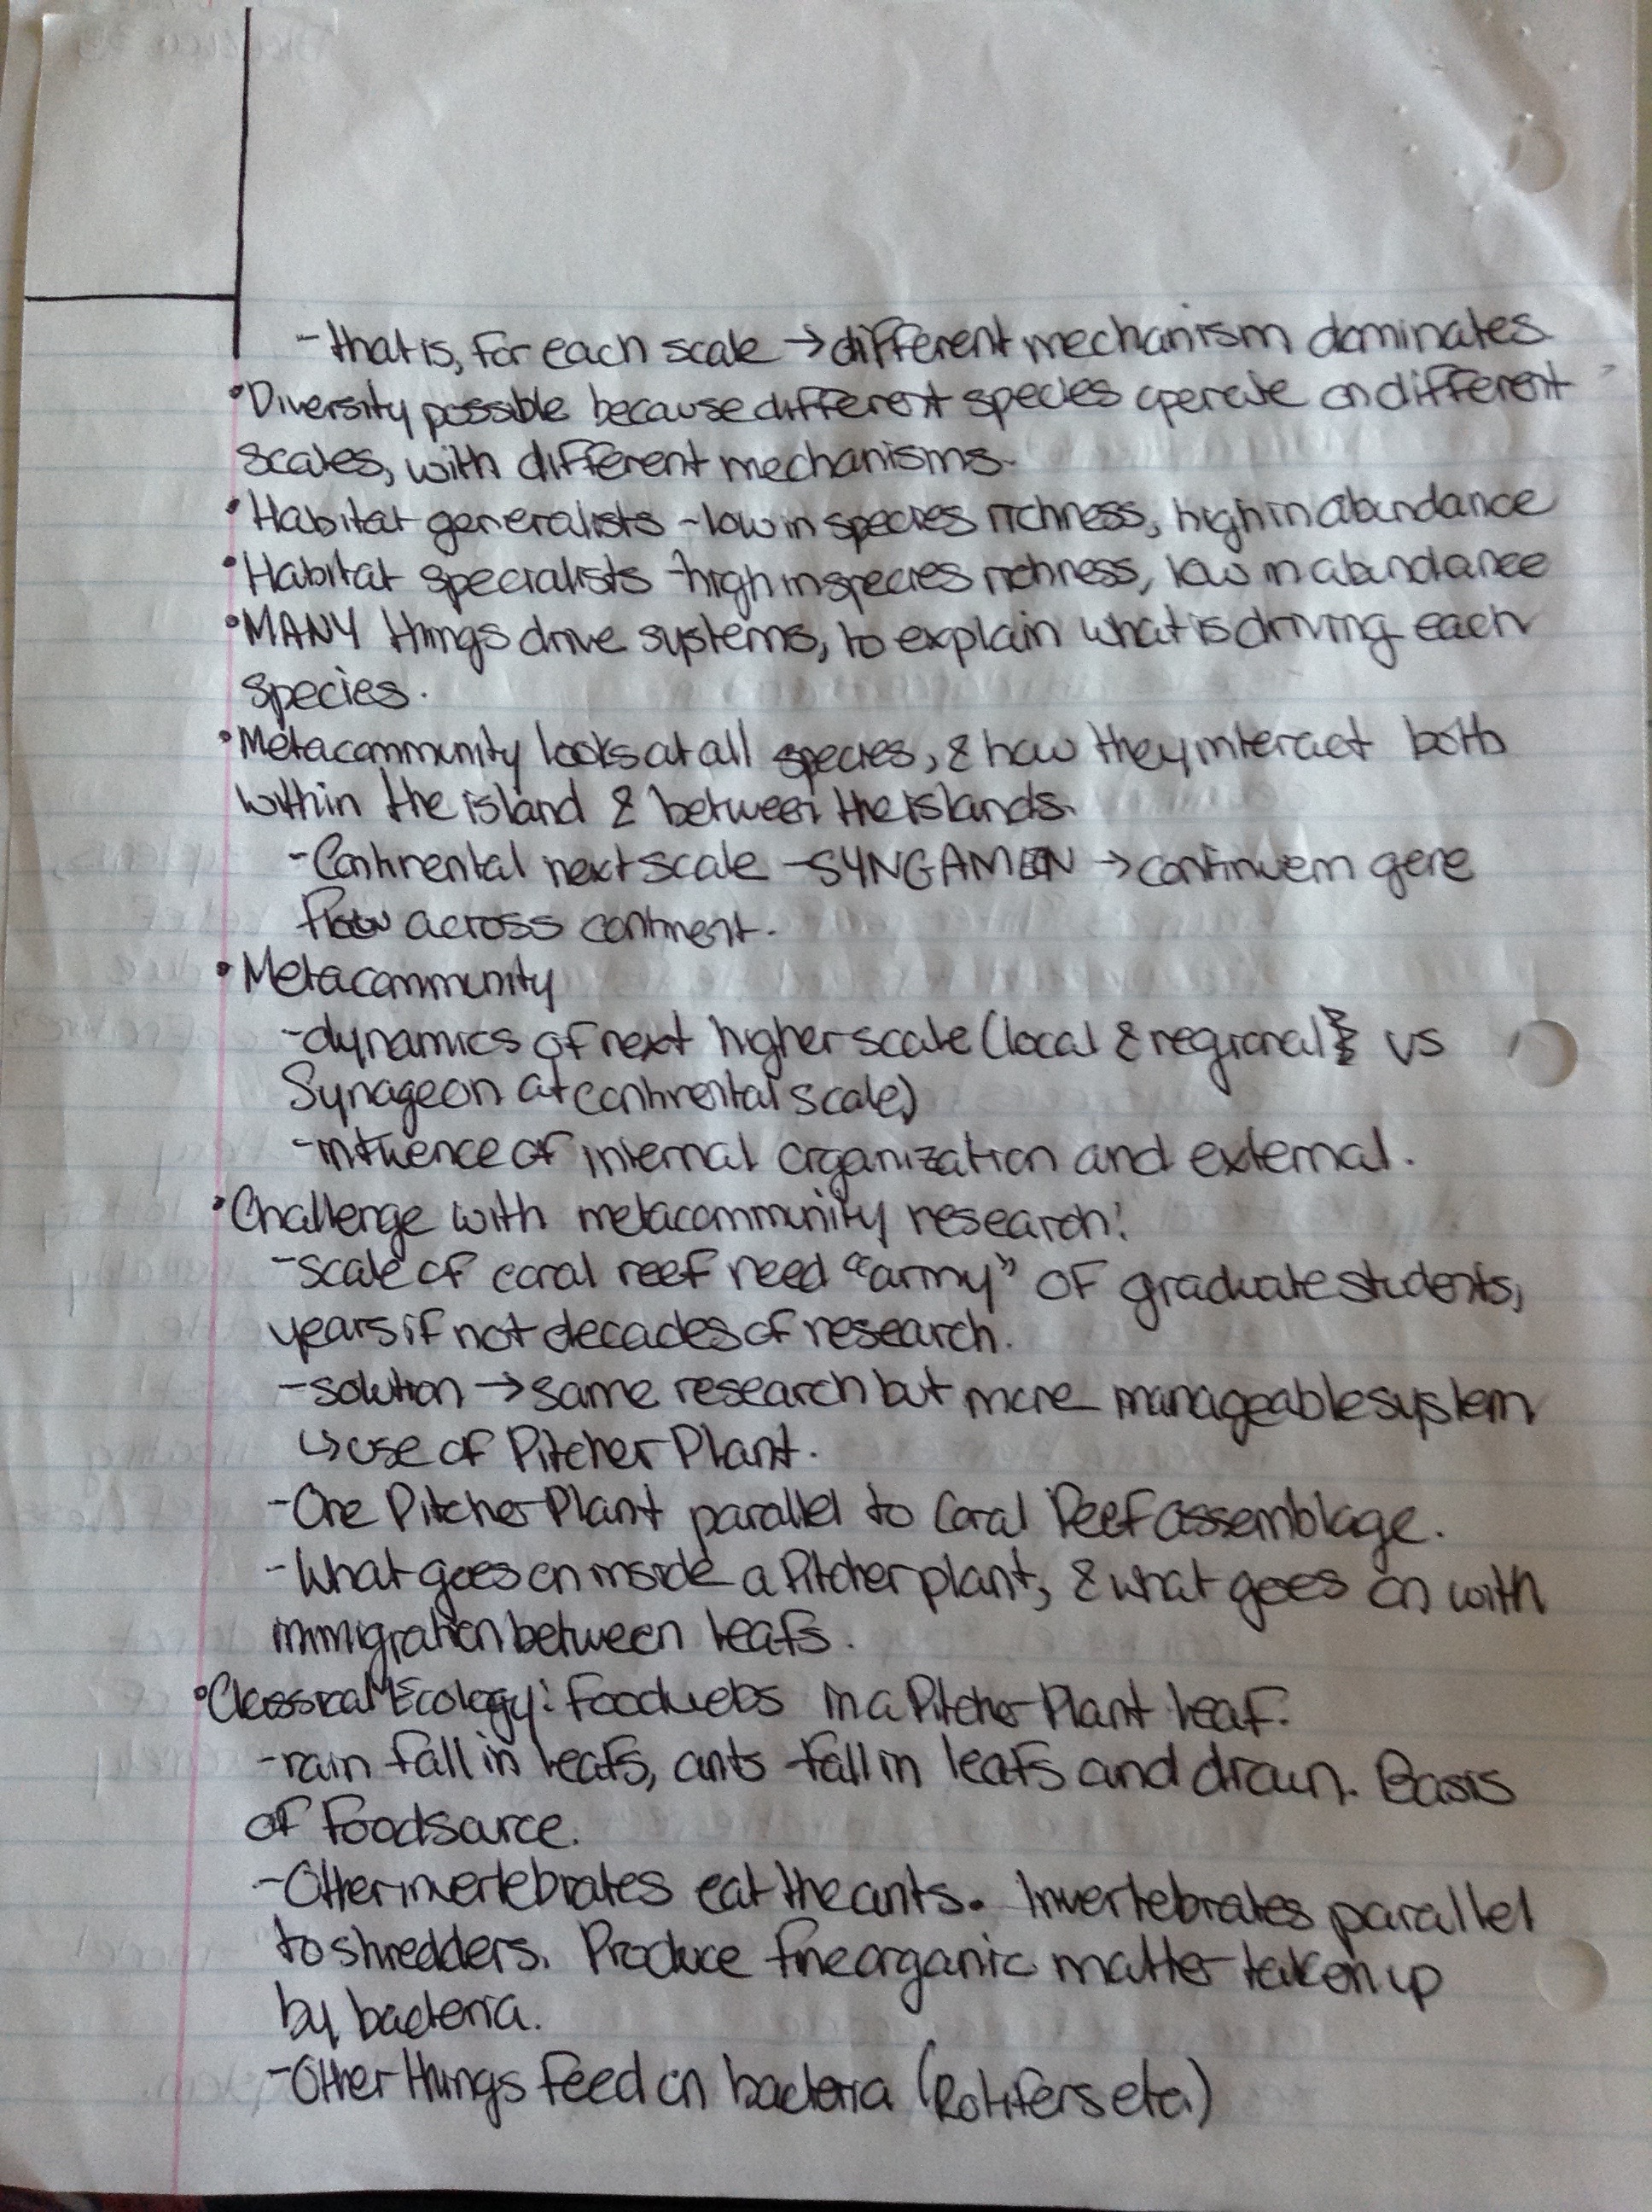 - that is, for each scale → different mechanism dominates.
• Diversity possible because different species operate on different
scales, with different mechanisms.
• Habitat generalists - low in species richness, high in abundance
• Habitat specialists - high in species richness, low in abundance
• MANY things drive systems, to explain what is driving each
species.
• Metacommunity looks at all species, & how they interact both
within the island & between the islands.
- Continental next scale - SYNGAMEON → continuem gene
flow across continent.
• Metacommunity
- dynamics of next higher scale (local & regional vs
Synageon at continental scale)
- influence of internal organization and external.
• Challenge with metacommunity research:
- scale of coral reef need "army" of graduate students,
years if not decades of research.
- solution → same research but more manageable system
↳ use of Pitcher Plant.
- One Pitcher Plant parallel to Coral Reef assemblage.
- What goes on inside a Pitcher plant, & what goes on with
immigration between leafs.
• Classical Ecology: Foodwebs in a Pitcher Plant leaf.
- rain fall in leafs, ants fall in leafs and drown. Basis
of food source.
- Other invertebrates eat the ants. Invertebrates parallel
to shredders. Produce fine organic matter taken up
by bacteria.
- Other things feed on bacteria (Rotifers etc)